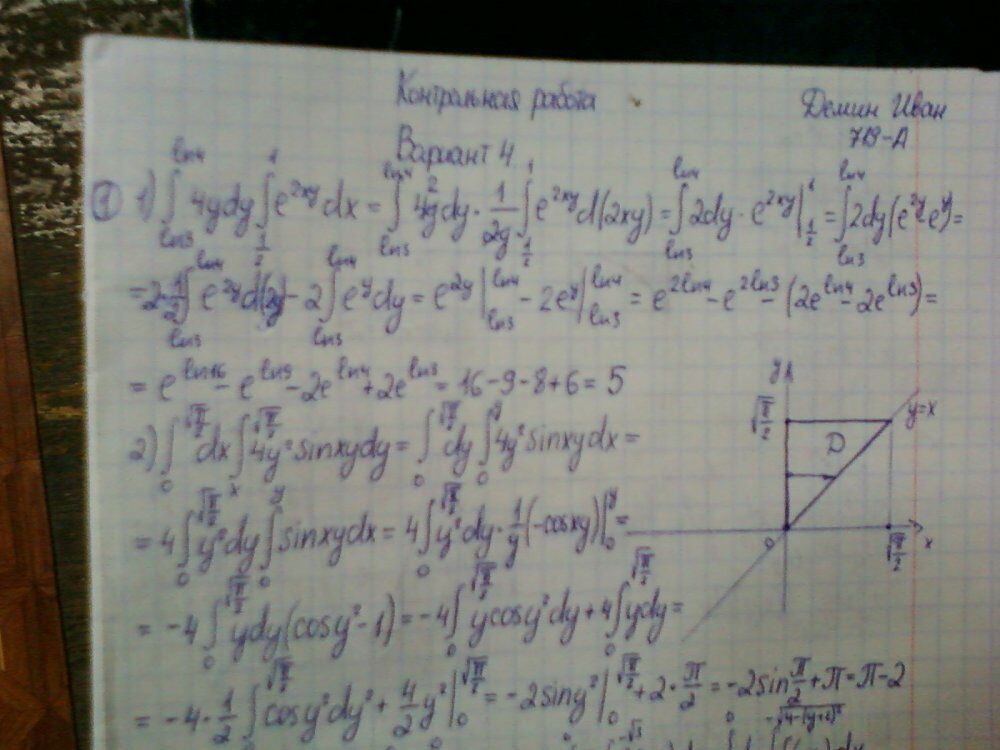 Контрольная работа
Демин Иван
719-А
Вариант 4.
① 1) ∫_{ln3}^{ln4} 4ydy ∫_{1/2}^{1} e^{2xy} dx = ∫_{ln3}^{ln4} 4y^{2}dy · 1/2y ∫_{1/2}^{1} e^{2xy} d(2xy) = ∫_{ln3}^{ln4} 2dy · e^{2xy} |_{1/2}^{1} = ∫_{ln3}^{ln4} 2dy (e^{2y} - e^{y}) =
= 2 · 1/2 ∫_{ln3}^{ln4} e^{2y} d(2y) - 2 ∫_{ln3}^{ln4} e^{y} dy = e^{2y} |_{ln3}^{ln4} - 2e^{y} |_{ln3}^{ln4} = e^{2ln4} - e^{2ln3} - (2e^{ln4} - 2e^{ln3}) =
= e^{ln16} - e^{ln9} - 2e^{ln4} + 2e^{ln3} = 16 - 9 - 8 + 6 = 5
2) ∫_{0}^{√(π/2)} dx ∫_{x}^{√(π/2)} 4y² sinxydy = ∫_{0}^{√(π/2)} dy ∫_{0}^{y} 4y² sinxydx =
= 4 ∫_{0}^{√(π/2)} y² dy ∫_{0}^{y} sinxydx = 4 ∫_{0}^{√(π/2)} y² dy · 1/y (-cosxy) |_{0}^{y} =
= -4 ∫_{0}^{√(π/2)} ydy (cosy² - 1) = -4 ∫_{0}^{√(π/2)} y cosy² dy + 4 ∫_{0}^{√(π/2)} ydy =
= -4 · 1/2 ∫_{0}^{√(π/2)} cosy² dy² + 4/2 y² |_{0}^{√(π/2)} = -2siny² |_{0}^{√(π/2)} + 2 · π/2 = -2sin π/2 + π = π - 2
y
√(π/2)
y=x
D
0
√(π/2)
x